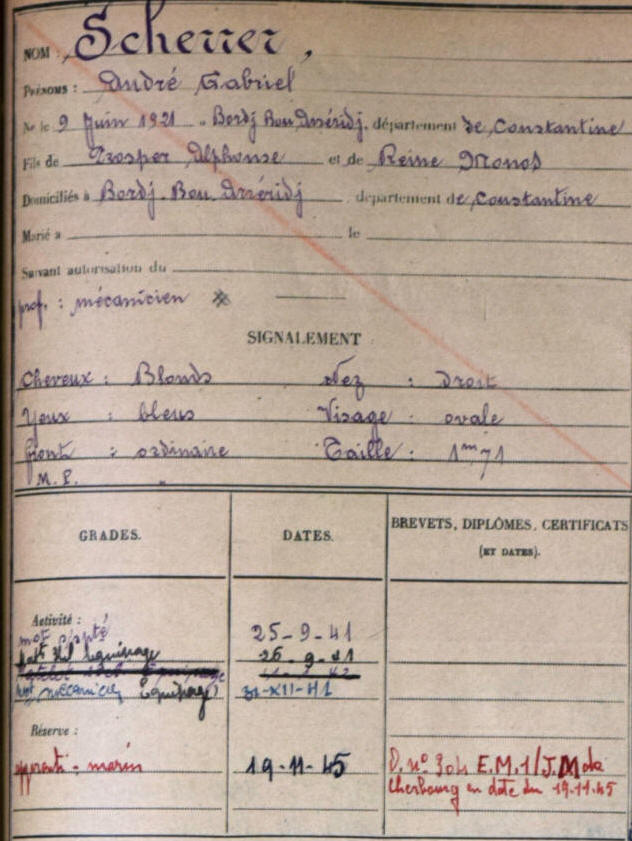 NOM : Scherrer,
PRÉNOMS : André Gabriel
Né le 9 Juin 1921 à Bordj Bou Arréridj, département de Constantine
Fils de Prosper Alphonse et de Reine Monod
Domiciliés à Bordj. Bou. Arréridj, département de Constantine
Marié à le
Suivant autorisation du
prof. : mécanicien
SIGNALEMENT
Cheveux : Blonds Nez : droit
Yeux : bleus Visage : ovale
Front : ordinaire Taille : 1m,71
M. P. "
GRADES. DATES. BREVETS, DIPLÔMES, CERTIFICATS
(ET DATES).
Activité :
mot 25-9-41
Equipage 26-9-41
Equipage
mécanicien Equipage 31-XII-41
Réserve :
apprenti-marin 19-11-45 D. n° 304 E.M.1/J.M de
Cherbourg en date du 19.11.45